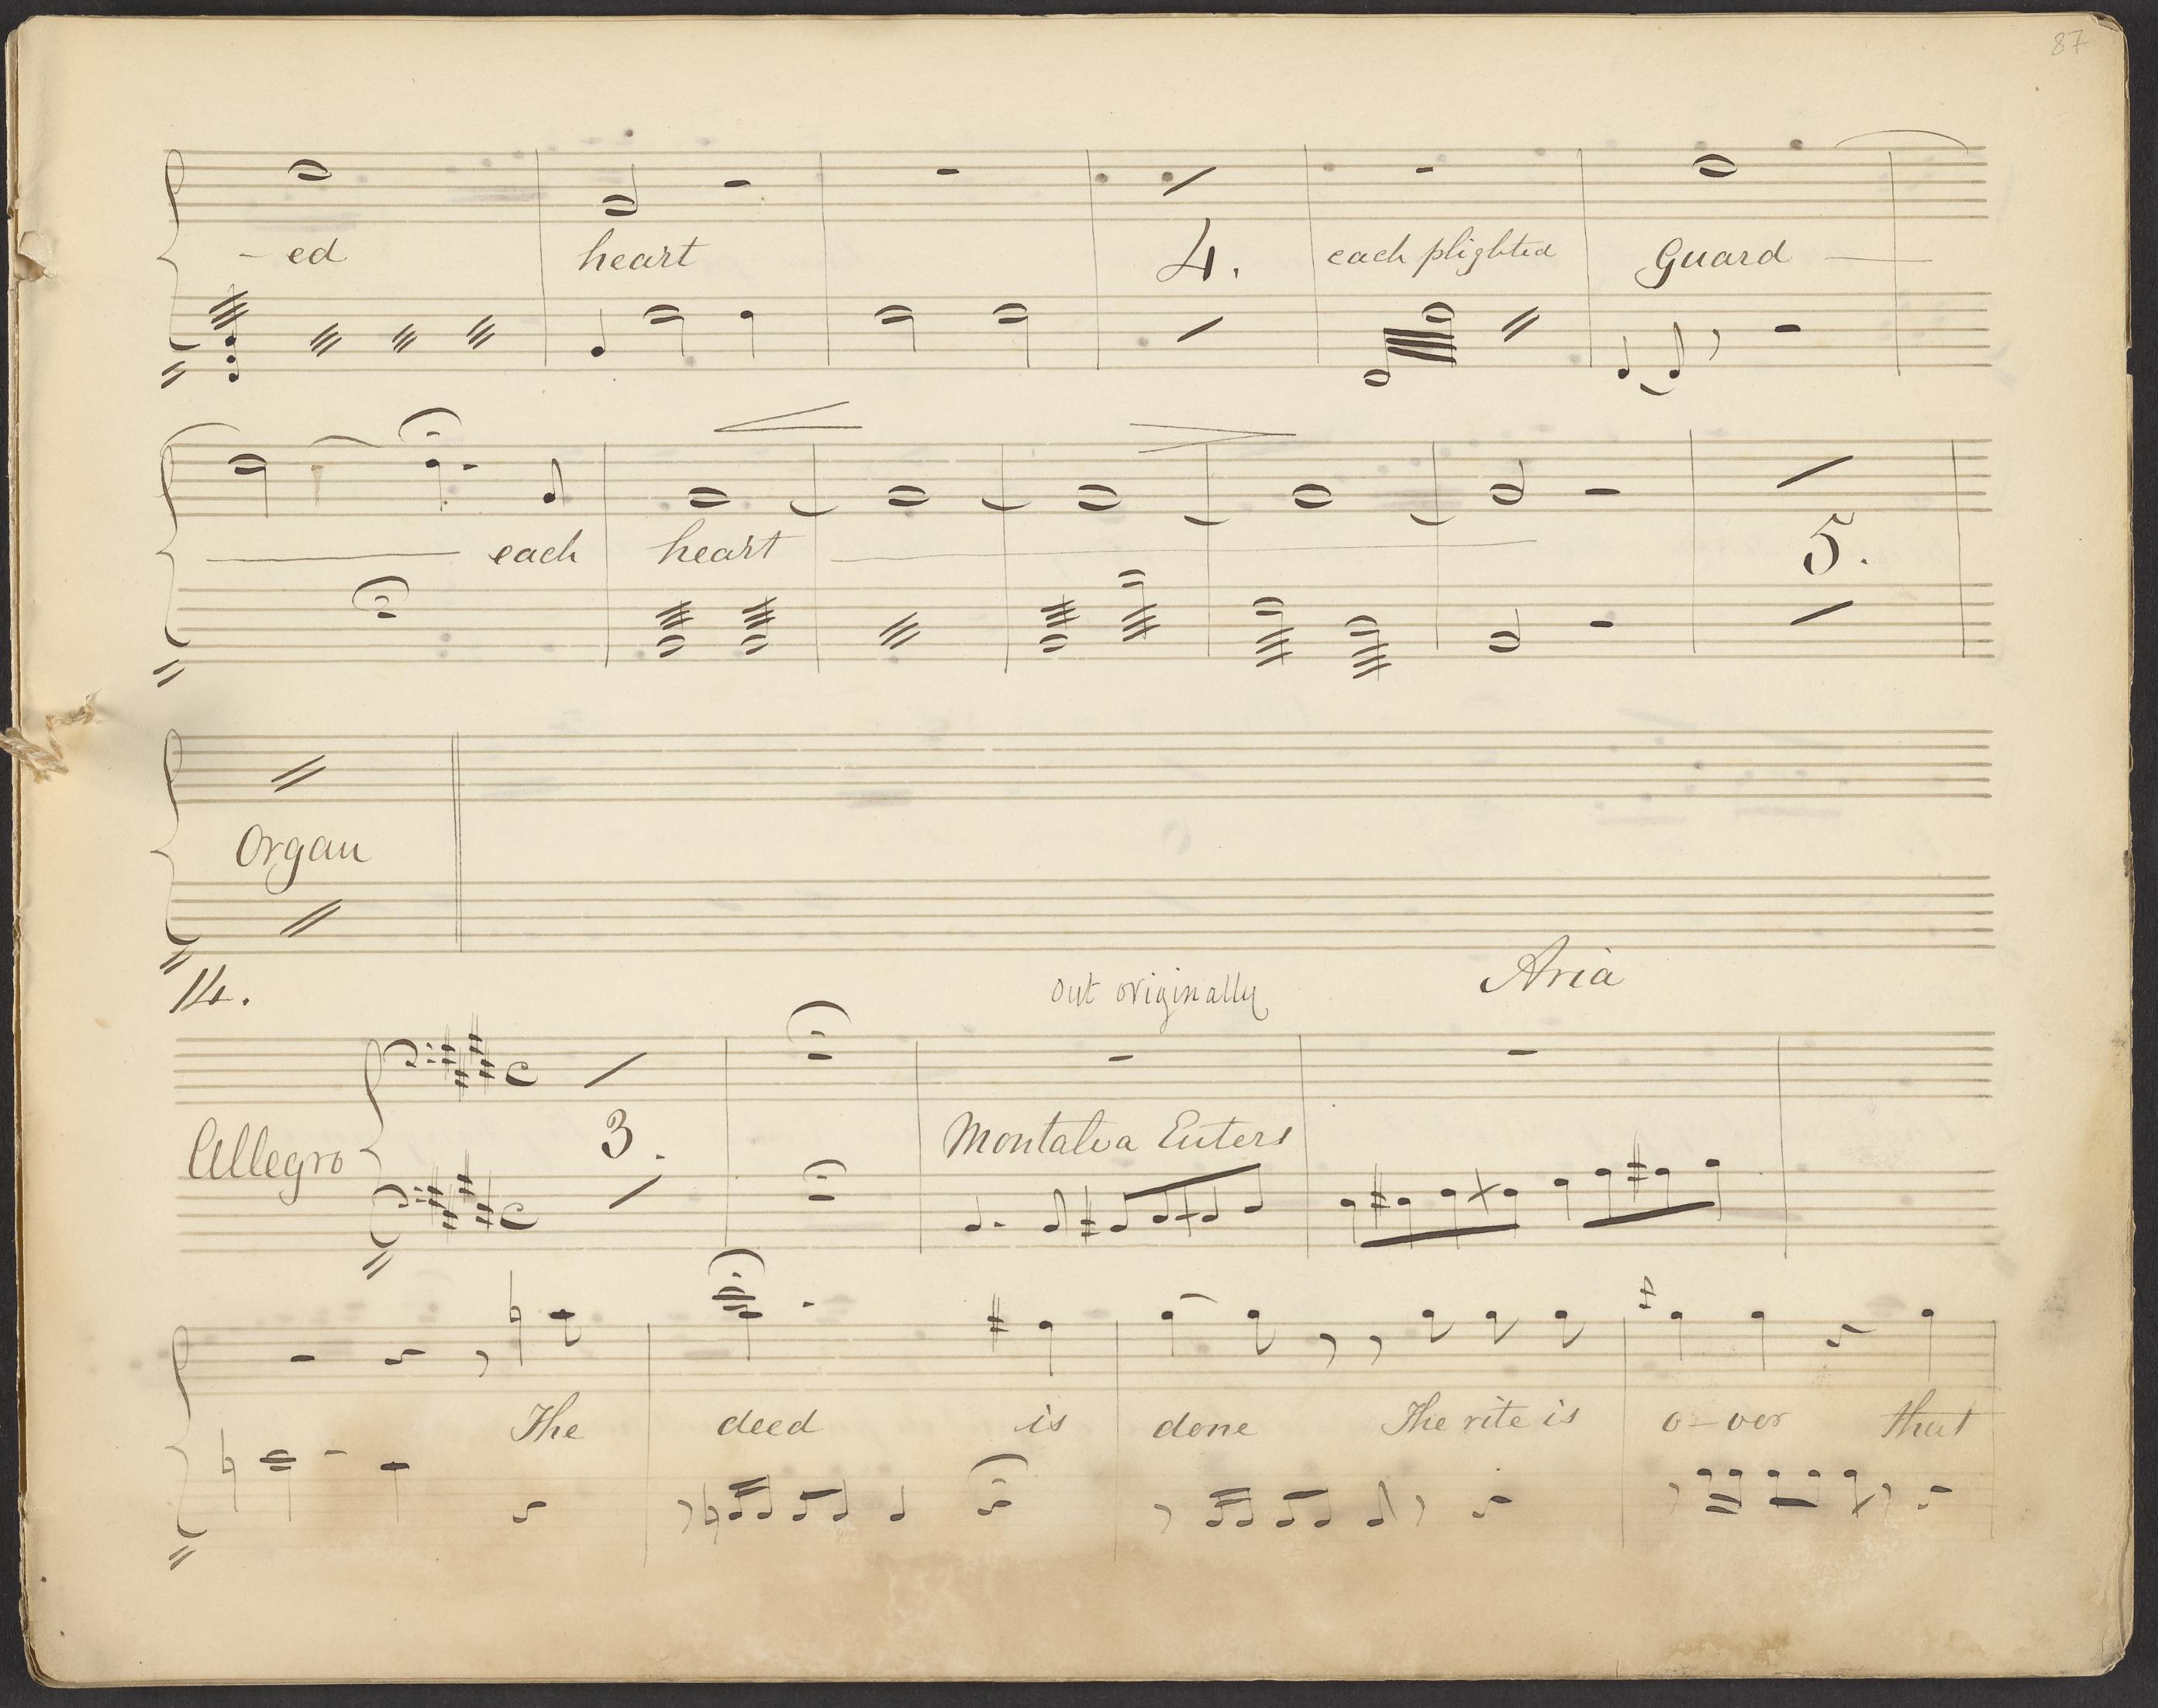 87
- ed heart 4. each plighted Guard
each heart 5.
Organ
14. out originally Aria
Allegro 3. Montalva Enters
The deed is done The rite is o - ver that